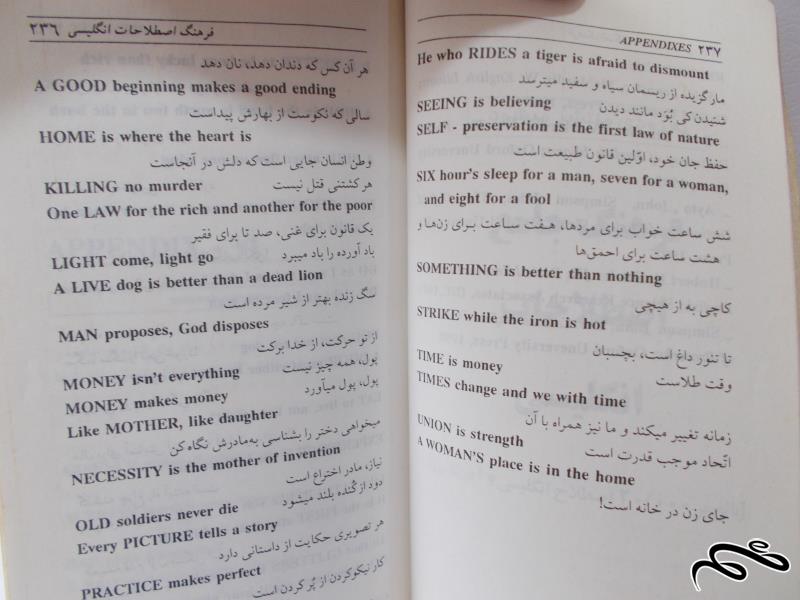 فرهنگ اصطلاحات انگلیسی ۲۳۶
هر آن کس که دندان دهد، نان دهد
A GOOD beginning makes a good ending
سالی که نکوست از بهارش پیداست
HOME is where the heart is
وطن انسان جایی است که دلش در آنجاست
KILLING no murder
هر کشتنی قتل نیست
One LAW for the rich and another for the poor
یک قانون برای غنی، صد تا برای فقیر
LIGHT come, light go
باد آورده را باد میبرد
A LIVE dog is better than a dead lion
سگ زنده بهتر از شیر مرده است
MAN proposes, God disposes
از تو حرکت، از خدا برکت
MONEY isn't everything
پول، همه چیز نیست
MONEY makes money
پول، پول میآورد
Like MOTHER, like daughter
میخواهی دختر را بشناسی به‌مادرش نگاه کن
NECESSITY is the mother of invention
نیاز، مادر اختراع است
OLD soldiers never die
دود از کُنده بلند میشود
Every PICTURE tells a story
هر تصویری حکایت از داستانی دارد
PRACTICE makes perfect
کار نیکوکردن از پُر کردن است
APPENDIXES ۲۳۷
He who RIDES a tiger is afraid to dismount
مار گزیده از ریسمان سیاه و سفید میترسد
SEEING is believing
شنیدن کی بُوَد مانند دیدن
SELF - preservation is the first law of nature
حفظ جان خود، اوّلین قانون طبیعت است
SIX hour's sleep for a man, seven for a woman,
and eight for a fool
شش ساعت خواب برای مردها، هـفت سـاعت بـرای زن‌ها و
هشت ساعت برای احمق‌ها
SOMETHING is better than nothing
کاچی به از هیچی
STRIKE while the iron is hot
تا تنور داغ است، بچسبان
TIME is money
وقت طلاست
TIMES change and we with time
زمانه تغییر میکند و ما نیز همراه با آن
UNION is strength
اتّحاد موجب قدرت است
A WOMAN'S place is in the home
جای زن در خانه است!